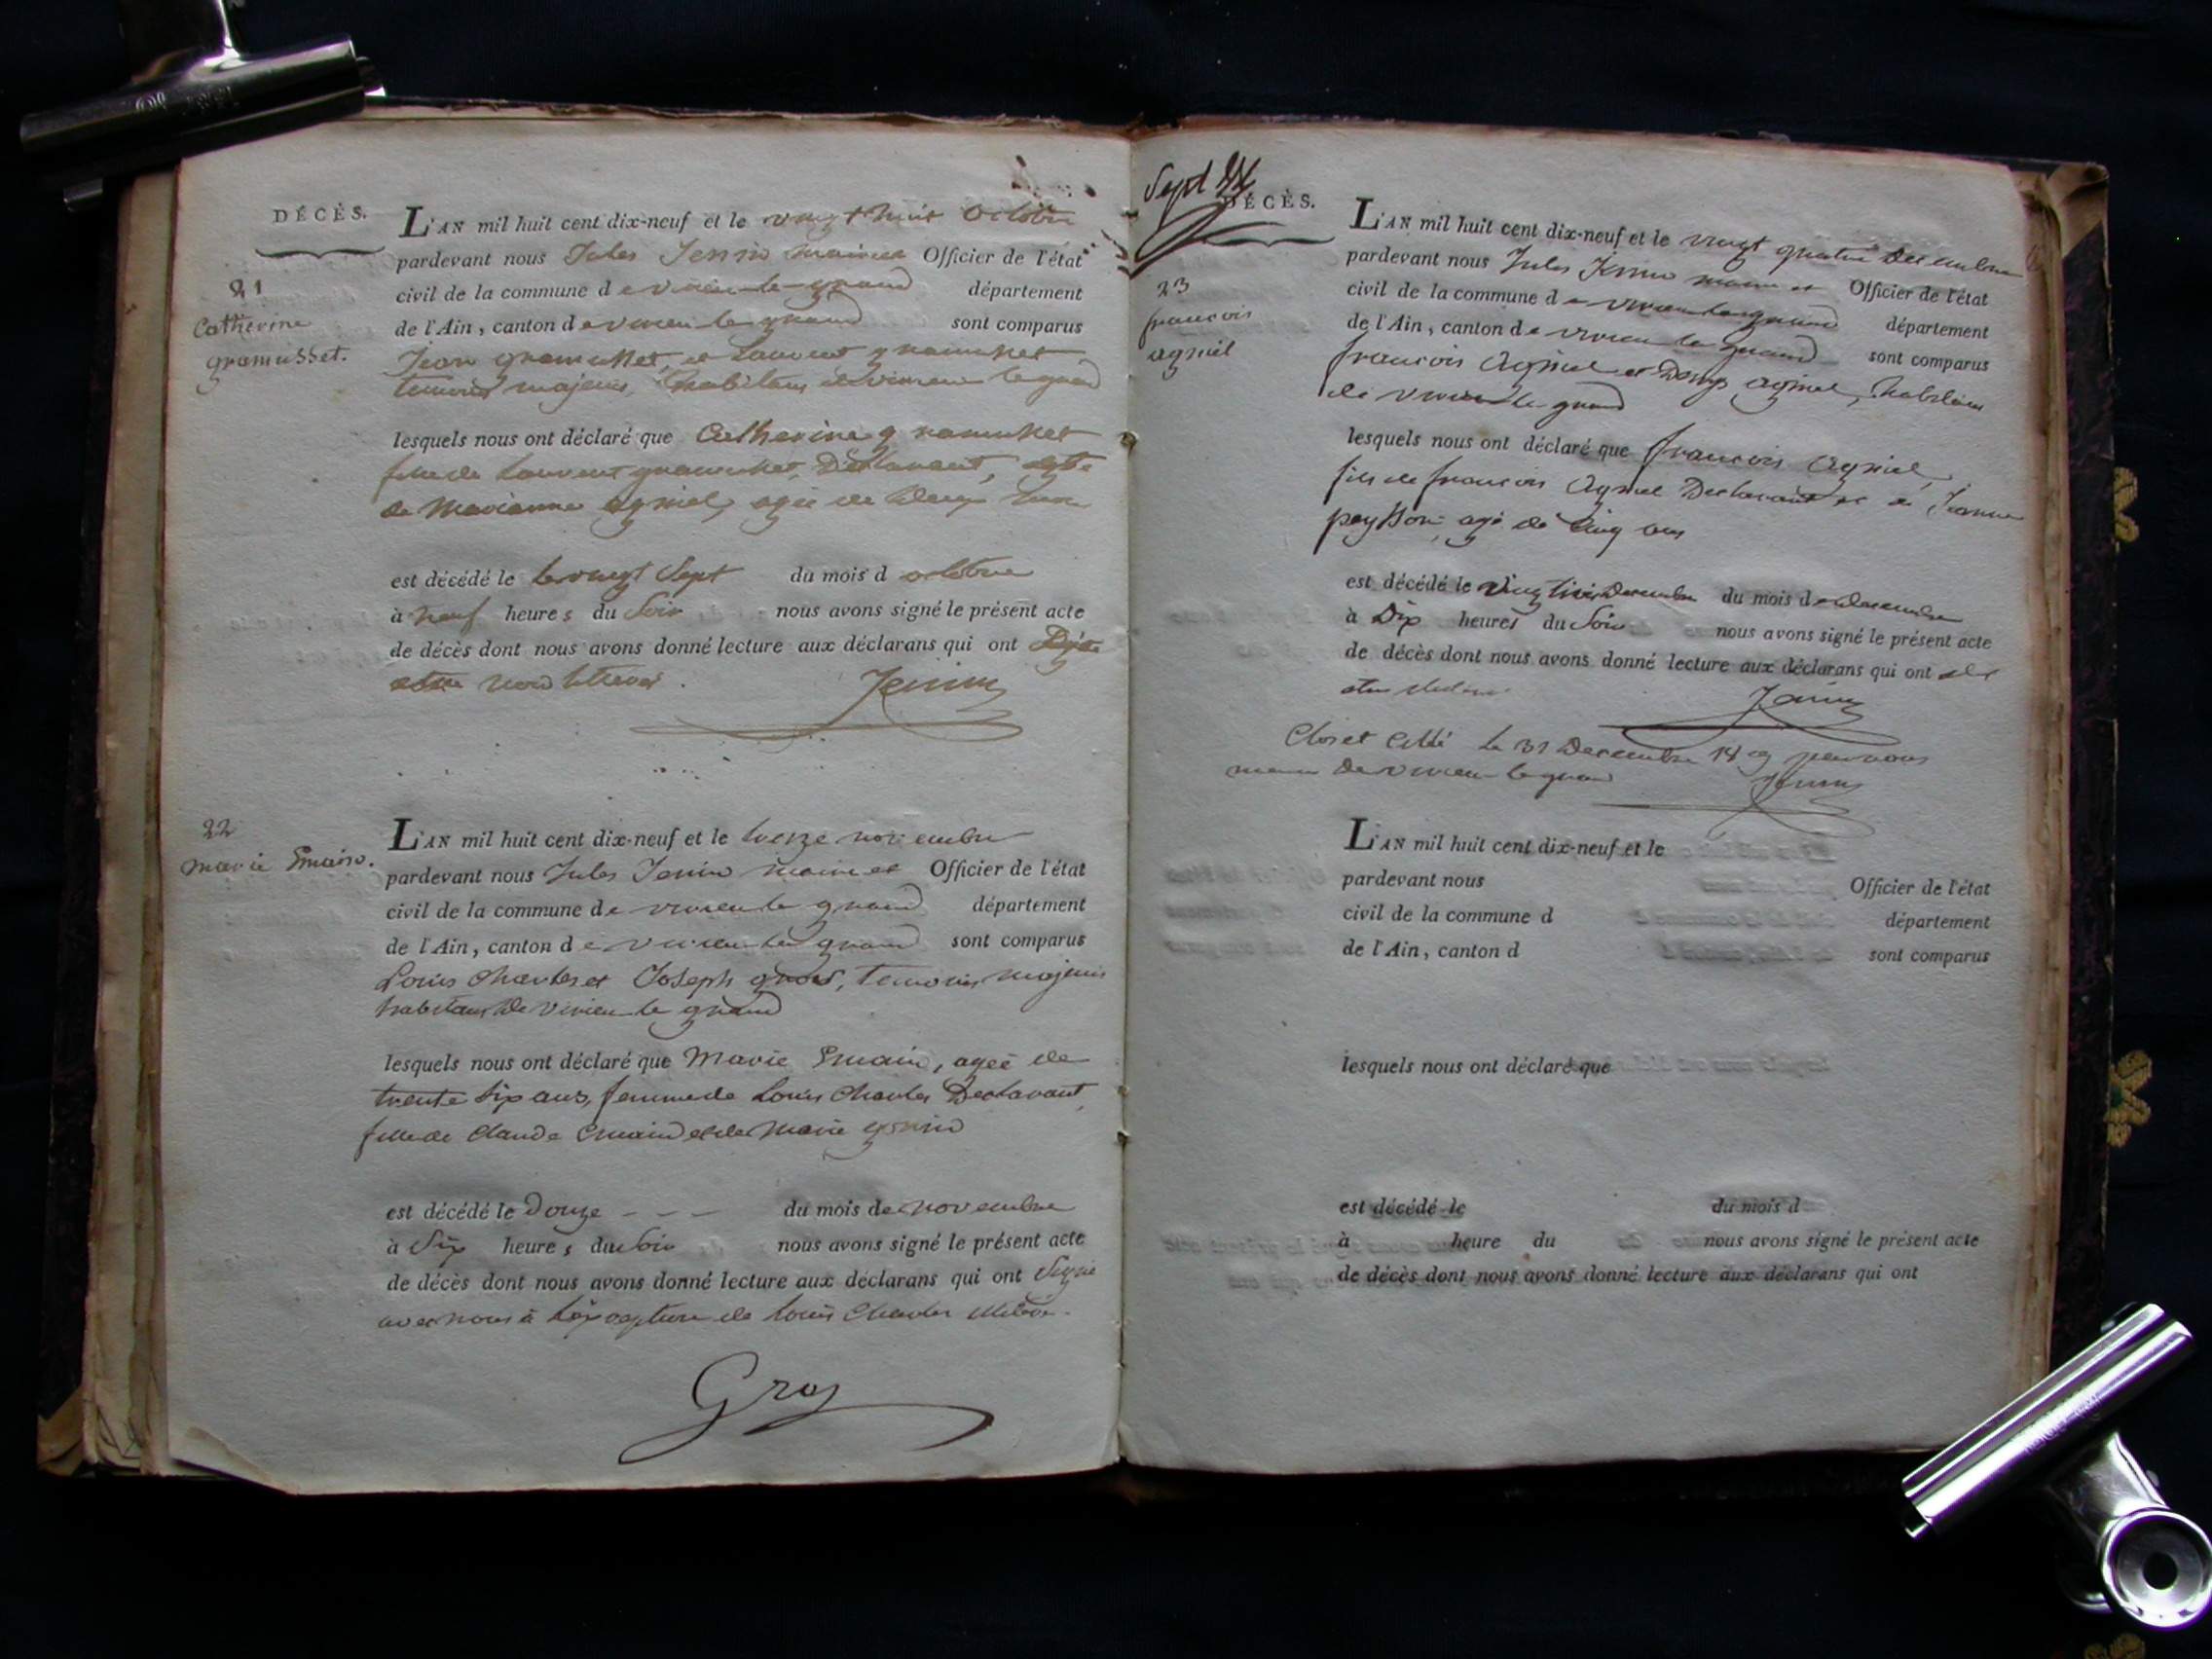 DÉCÈS.
21
Catherine
gramusset.
L'AN mil huit cent dix-neuf et le vingt huit octobre
pardevant nous Jules Jenin maire et Officier de l'état
civil de la commune de virieu le grand département
de l'Ain, canton de virieu le grand sont comparus
Jean gramusset, et Laurent gramusset
temoins majeurs, habitans de virieu le grand
lesquels nous ont déclaré que Catherine gramusset
fille de Laurent gramusset, Déclarant, et de
de Marianne agniel, agée de deux
est décédé le le vingt Sept du mois d octobre
à neuf heures du Soir nous avons signé le présent acte
de décès dont nous avons donné lecture aux déclarans qui ont
Jenin
22
marie Emain.
L'AN mil huit cent dix-neuf et le treize novembre
pardevant nous Jules Jenin maire et Officier de l'état
civil de la commune de virieu le grand département
de l'Ain, canton de virieu le grand sont comparus
Louis Charles et Joseph gros, temoins majeurs
habitans de virieu le grand
lesquels nous ont déclaré que Marie Emain, agée de
trente Six ans, femme de Louis Charles Declarant,
fille de Claude Emain et de Marie
est décédé le Douze - - - du mois de novembre
à Six heures du Soir nous avons signé le présent acte
de décès dont nous avons donné lecture aux déclarans qui ont Signé
avec nous à l'exception de Louis Charles
Gros
Sept
DÉCÈS.
23
francois
agniel
L'AN mil huit cent dix-neuf et le vingt quatre Decembre
pardevant nous Jules Jenin maire et Officier de l'état
civil de la commune de virieu le grand département
de l'Ain, canton de virieu le grand sont comparus
francois Agniel et Denys agniel, habitans
de virieu le grand
lesquels nous ont déclaré que francois Agniel,
fils de francois Agniel Declarant et de Jeanne
peysson, agé de Cinq ans
est décédé le vingt trois Decembre du mois de Decembre
à Dix heures du Soir nous avons signé le présent acte
de décès dont nous avons donné lecture aux déclarans qui ont
Jenin
Clos et le 31 Decembre 1819 par nous
maire de virieu le grand
Jenin
L'AN mil huit cent dix-neuf et le
pardevant nous Officier de l'état
civil de la commune d département
de l'Ain, canton d sont comparus
lesquels nous ont déclaré que
est décédé le du mois d
à heure du nous avons signé le présent acte
de décès dont nous avons donné lecture aux déclarans qui ont